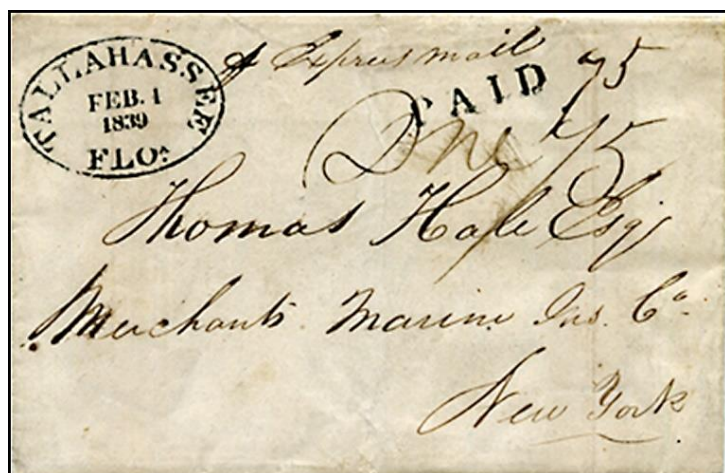 TALLAHASSEE
FEB. 1
1839
FLOA
Express mail 75
PAID
75
Thomas Hale Esq
Merchants Marine Ins. Co
New York